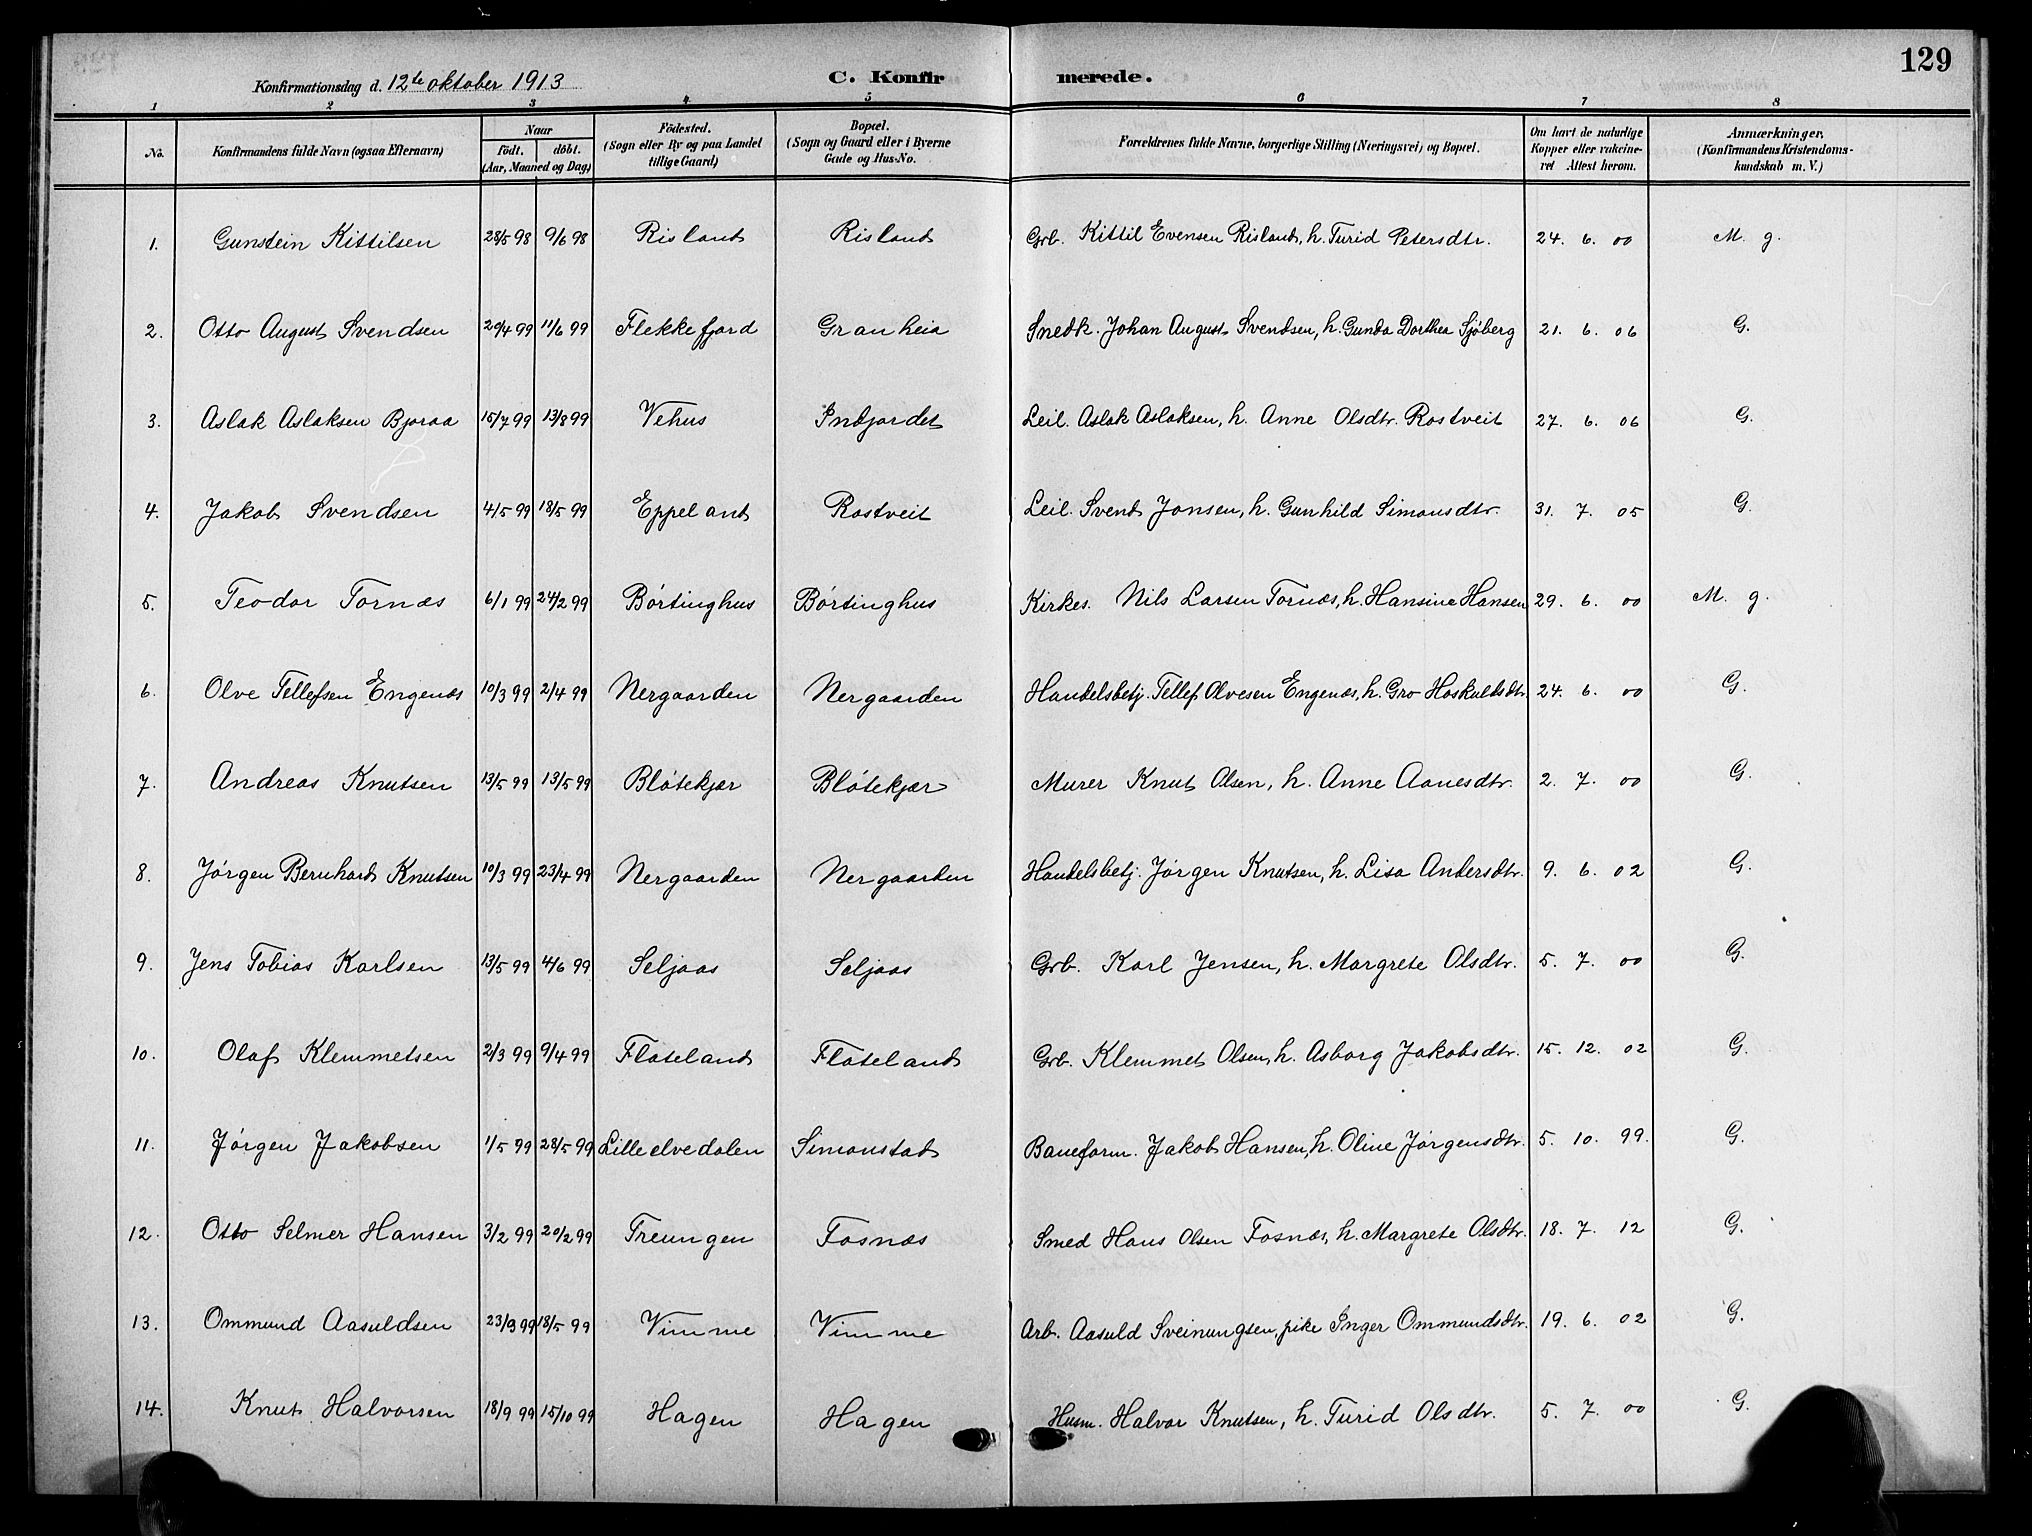 129
Konfirmationsdag d. 12te oktober 1913 C. Konfirmerede.
1 2 3 4 5 6 7 8
No. Konfirmandens fulde Navn (ogsaa Efternavn) Naar født. døbt. (Aar, Maaned og Dag) Fødested. (Sogn eller By og paa Landet tillige Gaard) Bopæl. (Sogn og Gaard eller i Byerne Gade og Hus-No. Forældrenes fulde Navne, borgerlige Stilling (Næringsvei) og Bopæl. Om havt de naturlige Kopper eller vakcineret Attest herom. Anmærkninger. (Konfirmandens Kristendomskundskab m. V.)
1. Gunstein Kittilsen 28/5 98 9/6 98 Risland Risland Grb. Kittil Evensen Risland, h. Turid Petersdtr. 24. 6. 00 M. g.
2. Otto August Svendsen 20/4 99 11/6 99 Flekkefjord Granheia Snedk. Johan August Svendsen, h. Gunda Dorthea Sjöberg 21. 6. 06 G.
3. Aslak Aslaksen Bjoraa 15/7 99 13/8 99 Vehus Indjordet Leil. Aslak Aslaksen, h. Anne Olsdtr. Rostveit 27. 6. 06 G.
4. Jakob Svendsen 4/5 99 18/5 99 Eppeland Rostveit Leil. Svend Jonsen, h. Gunhild Simonsdtr. 31. 7. 05 G.
5. Teodor Tornæs 6/1 99 24/2 99 Börtinghus Börtinghus Kirkes. Nils Larsen Tornæs, h. Hansine Hansen 29. 6. 00 M. g.
6. Olve Tellefsen Engenæs 10/3 99 2/4 99 Nergaarden Nergaarden Handelsbetj. Tellef Olvesen Engenæs, h. Gro Hoskuldsdtr. 24. 6. 00 G.
7. Andreas Knutsen 13/5 99 13/5 99 Blötekjær Blötekjær Murer Knut Olsen, h. Anne Aanesdtr. 2. 7. 00 G.
8. Jørgen Bernhard Knutsen 10/3 99 23/4 99 Nergaarden Nergaarden Handelsbetj. Jørgen Knutsen, h. Lisa Andersdtr. 9. 6. 02 G.
9. Jens Tobias Karlsen 13/5 99 4/6 99 Seljaas Seljaas Grb. Karl Jensen, h. Margrete Olsdtr. 5. 7. 00 G.
10. Olaf Klemmetsen 2/3 99 9/4 99 Flateland Flateland Grb. Klemmet Olsen, h. Asborg Jakobsdtr. 15. 12. 02 G.
11. Jørgen Jakobsen 1/5 99 28/5 99 Lille elvedalen Simonstad Baneform. Jakob Hansen, h. Oline Jørgensdtr. 5. 10. 99. G.
12. Otto Selmer Hansen 3/2 99 20/2 99 Treungen Fosnæs Smed Hans Olsen Fosnæs, h. Margrete Olsdtr. 18. 7. 12 G.
13. Ommund Aasuldsen 23/3 99 18/5 99 Vimme Vimme Arb. Aasuld Sveinungsen, pike Inger Ommundsdtr. 19. 6. 02 G.
14. Knut Halvorsen 18/9 99 15/10 99 Hagen Hagen Husm. Halvor Knutsen, h. Turid Olsdtr. 5. 7. 00 G.